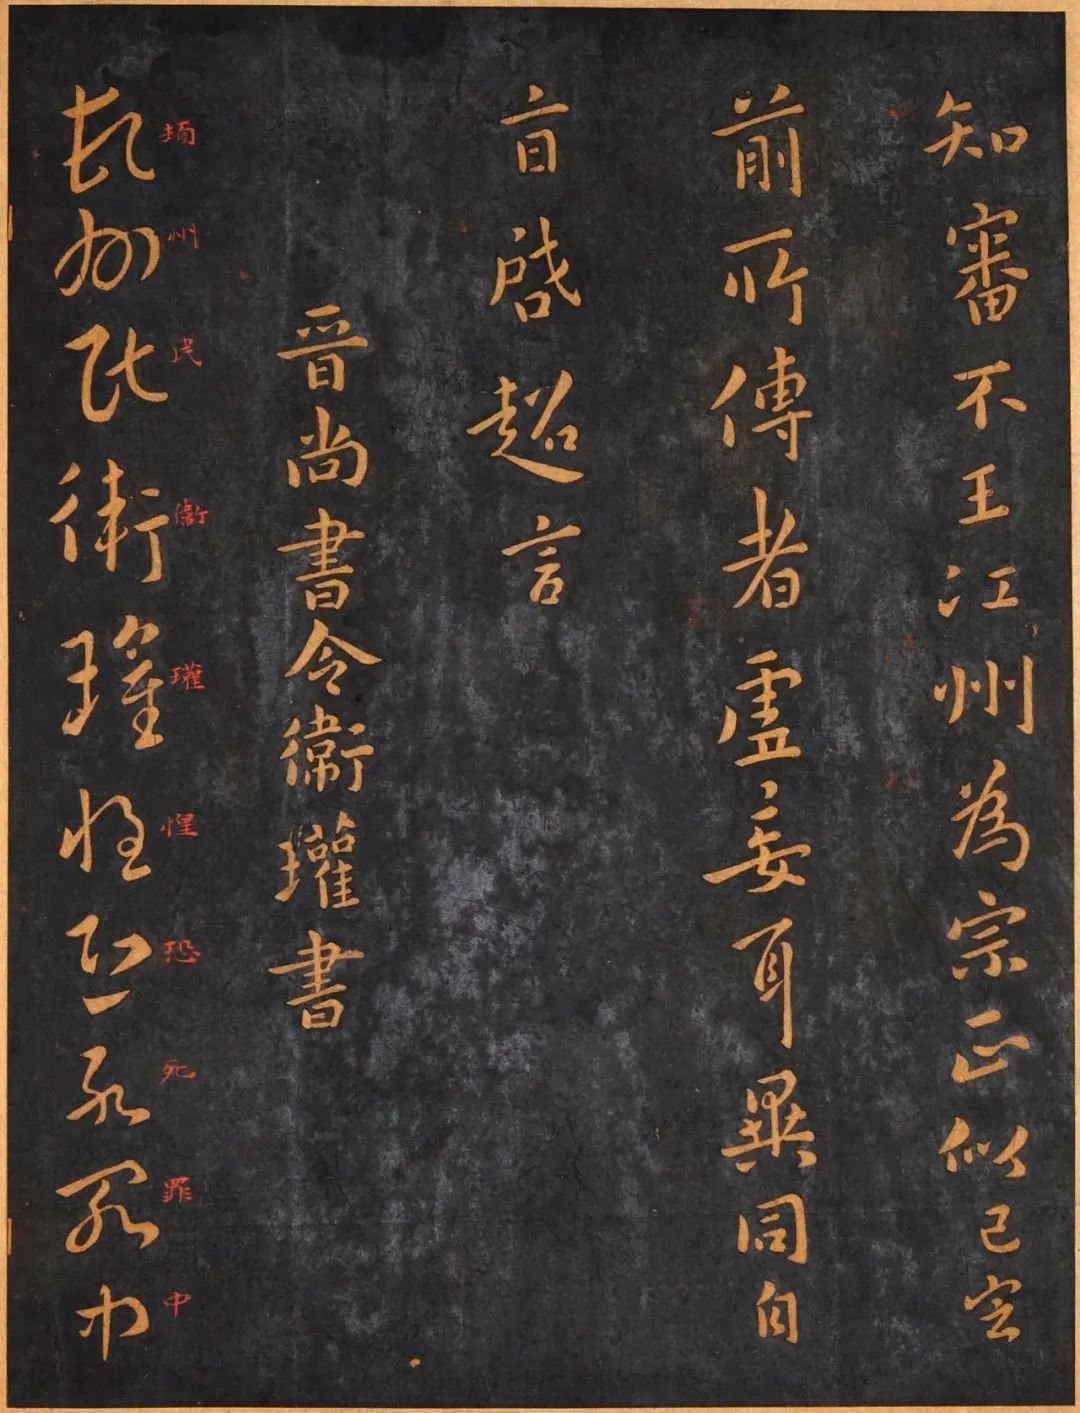 知審不王江州為宗正似已定
前所傳者虛妄耳異同自
啓超言
晉尚書令衛瓘書
州民衛瓘惶恐死罪中
州民衛瓘惶恐死罪中